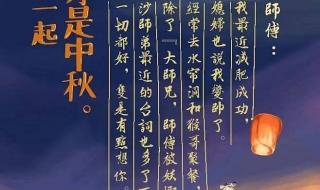 師傅：
我最近減肥成功，
媳婦也說我變帥了。
經常去水帘洞和猴哥聚餐
沙師弟最近的台詞也多了
除了『大師兄，師傅被妖
一切都好，隻是有點想你。
一起
才是中秋。